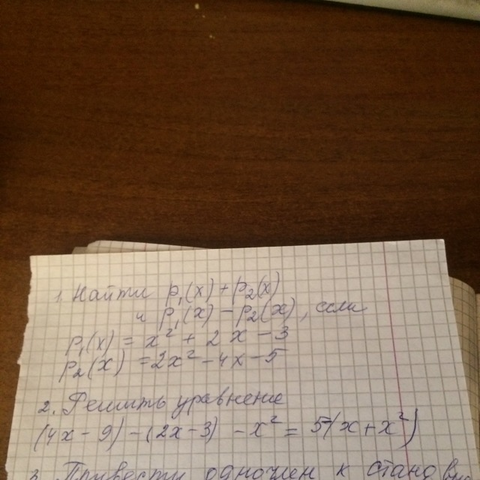 1. Найти p₁(x) + p₂(x)
и p₁(x) - p₂(x), если
p₁(x) = x² + 2x - 3
p₂(x) = 2x² - 4x - 5
2. Решить уравнение
(4x - 9) - (2x - 3) - x² = 5(x + x²)
3. Привести одночлен к